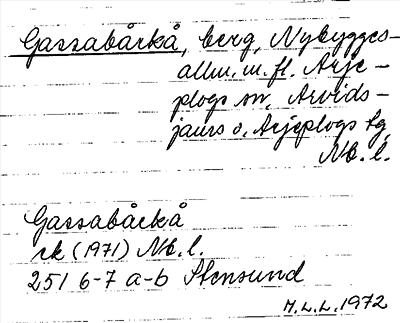 Gassabåckå, berg, Nybygges-
allm. m. fl. Arje-
plogs sn, Arvids-
jaurs o. Arjeplogs tg
Nb. l.
Gassabåckå
rk (1971) Nb. l.
25I 6-7 a-b Stensund
M. L. L. 1972